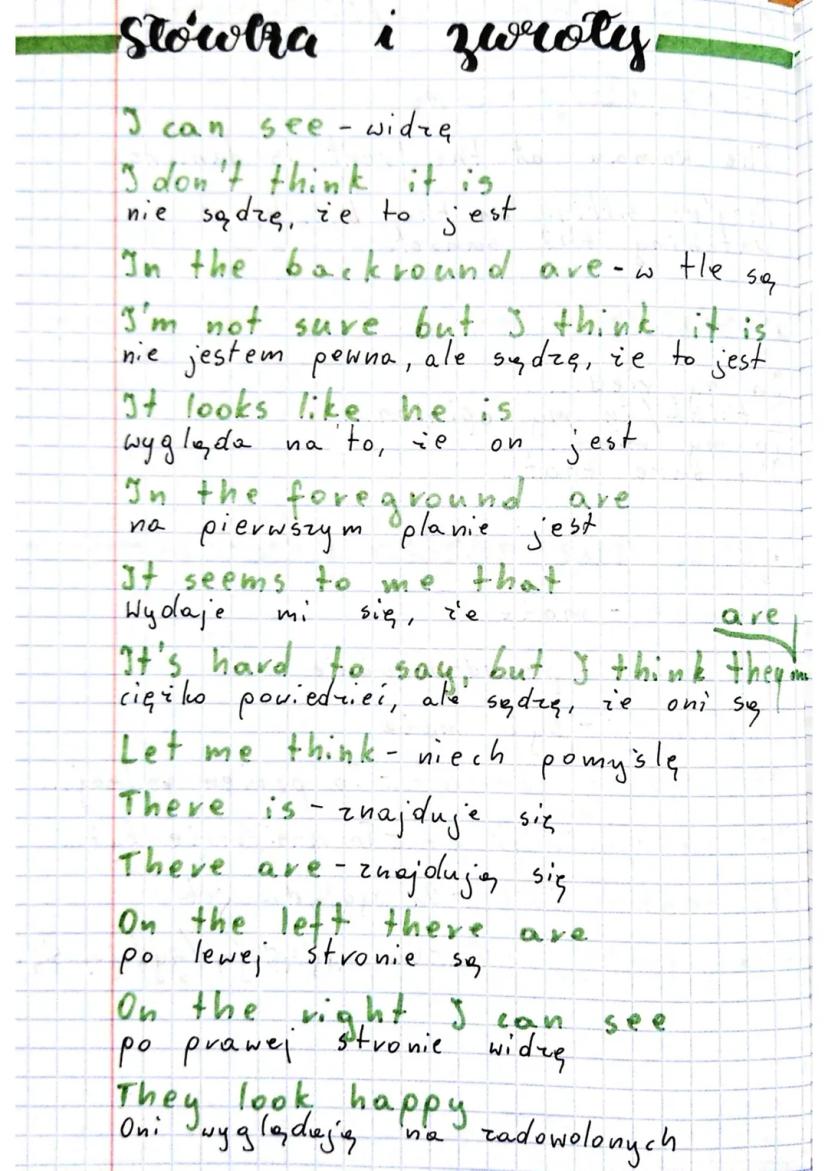 słówka i zwroty
I can see - widzę
I don't think it is
nie sądzę, że to jest
In the backround are - w tle są
I'm not sure but I think it is
nie jestem pewna, ale sądzę, że to jest
It looks like he is
wygląda na to, że on jest
In the foreground are
na pierwszym planie jest
It seems to me that
Wydaje mi się, że
are
It's hard to say, but I think they
ciężko powiedzieć, ale sądzę, że oni są
Let me think - niech pomyślę
There is - znajduje się
There are - znajdują się
On the left there are
po lewej stronie są
On the right I can see
po prawej stronie widzę
They look happy
Oni wyglądają na zadowolonych